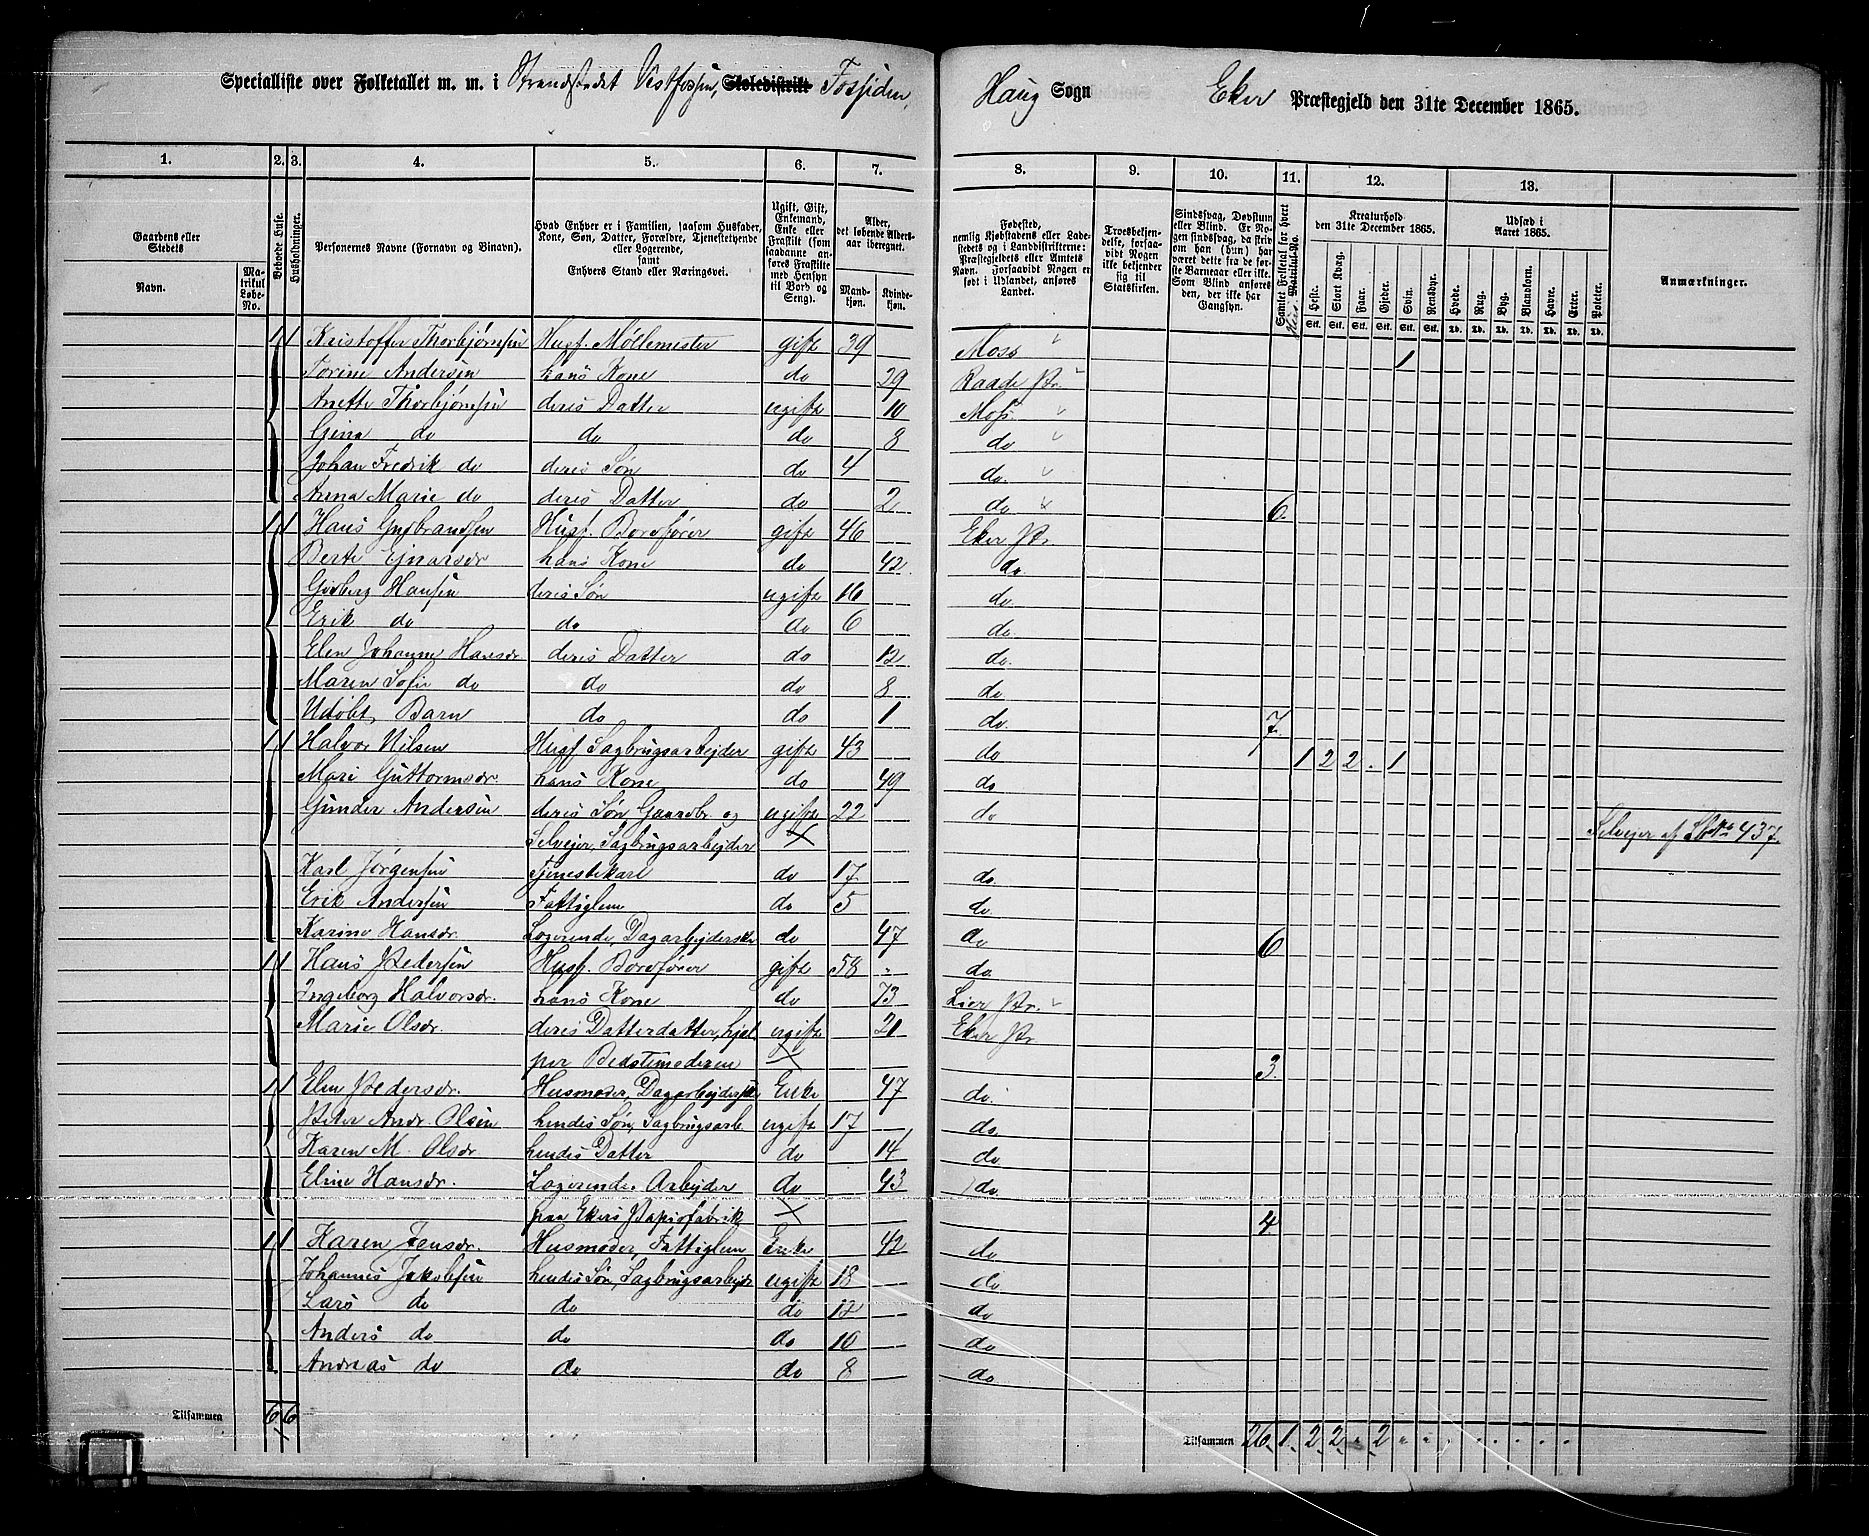 Specialliste over Folketallet m. m. i Strandstedet Vestfossen, Skoledistrikt Fossiden,
Haug Sogn Eker Præstegjeld den 31te December 1865.
1. 2. 3. 4. 5. 6. 7. 8. 9. 10. 11. 12. 13.
Gaardens eller Stedets
Navn.
Matrikul Løbe-No.
Beboede Huse.
Husholdninger.
Personernes Navne (Fornavn og Binavn).
Hvad Enhver er i Familien, saasom Husfader, Kone, Søn, Datter, Forældre, Tjenestetyende eller Logerende, samt Enhvers Stand eller Næringsvei.
Ugift, Gift, Enkemand, Enke eller Fraskilt (som saadanne anføres Fraskilte med Hensyn til Bord og Seng).
Alder, det løbende Aldersaar iberegnet.
Mandkjøn. Kvindekjøn.
Fødested, nemlig Kjøbstadens eller Ladestedets og i Landdistrikterne: Præstegjeldets eller Amtets Navn. Forsaavidt Nogen er født i Udlandet, anføres Landet.
Troesbekjendelse, forsaavidt Nogen ikke bekjender sig til Statskirken.
Sindssvag, Døvstum eller Blind. Er Nogen sindssvag, da skrives dette fra de første Barneaar eller ikke. Som Blind anføres den, der ikke har Gangsyn.
Samlet Folketal for hvert Matrikul-No.
Kreaturhold den 31te December 1865.
Heste. Stort Kvæg. Faar. Gjeder. Svin. Rensdyr.
Udsæd i Aaret 1865.
Hvede. Rug. Byg. Blandkorn. Havre. Erter. Poteter.
Anmærkninger.
1 1 Kristoffer Thorbjørnsen Husf. Møllemester gift 39 Moss 1
Torine Andersen hans Kone do 29 Raade Pr.
Anette Thorbjørnsen deres Datter ugift 10 Moss
Gina do do do 8 do
Johan Fredrik do deres Søn do 4 do.
Anna Marie do deres Datter do 2 do 6.
1 1 Hans Gudbrandsen Husf. Bordfører gift 46 Eker Pr.
Berte Ejnarsdr hans Kone do 42 do.
Gudberg Hansen deres Søn ugift 16 do.
Erik do do do 6 do.
Elen Johanne Hansdr. deres Datter do 12 do.
Maren Sofie do do do 8 do
Udøbt Barn do do 1 do. 7.
1 1 Halvor Nilsen Husf Sagbrugsarbejder gift 43 do 1 2 2 . 1
Mari Guttormsdr. hans Kone do 49 do
Gunder Andersen deres Søn, Gaardbr. og ugift 22 do Selvejer af LNo 437.
Selvejer, Sagbrugsarbejder
Karl Jørgensen Tjenestekarl do 17 do.
Erik Andersen Fattiglem do 5 do
Karine Hansdr. Logerende, Dagarbejderske do 47 do 6
1 1 Hans Pedersen Husf. Bordfører gift 58 do.
Ingeborg Halvorsdr. hans Kone do 73 Lier Pr.
Marie Olsdr. deres Datterdatter, hjel- ugift 21 Eker Pr
per Bedstemoderen 3.
1 1 Elen Pedersdr. Husmoder, Dagarbejderske Enke 47 do.
Peter Andr. Olsen hendes Søn, Sagbrugsarb. ugift 17 do.
Karen M. Olsdr. hendes Datter do 14 do.
Eline Hansdr. Logerende. Arbejder do 43 do.
paa Ekers Papirfabrik 4.
1 1 Karen Jensdr. Husmoder, Fattiglem Enke 42 do
Johannes Jakobsen hendes Søn, Sagbrugsarbejdr ugift 18 do
Lars do do do 12 do
Anders do do do 10 do
Andreas do do do 8 do
Tilsammen 6 6
Tilsammen 26. 1. 2 2 2